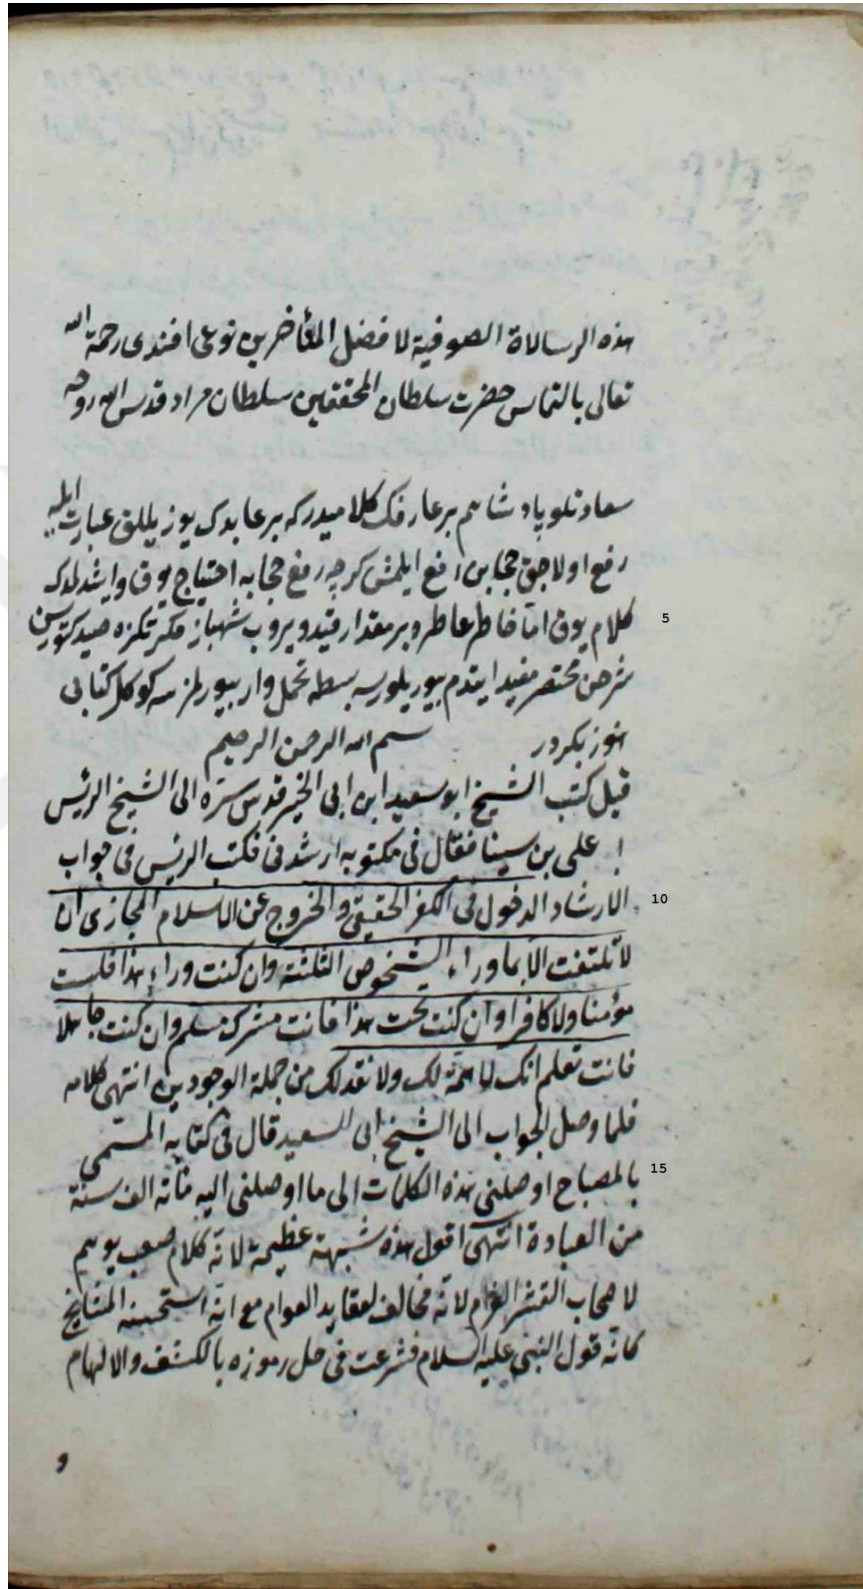 هذه الرسالاة الصوفية لافضل المتأخرين نوعى افندى رحمة الله
تعالى بالتماس حضرت سلطان المحققين سلطان مراد قدس الله روحه
سعادتلو پادشاهم بر عارفك كلاميدركه بر عابدك يوز ييللق عبارت ايله
رفع اولاجق حجابن رفع ايلمش كرچه رفع حجابه احتياج يوق وايشدلدك
كلام يوق اما خاطر عاطر و بر مقدار قيد ويروب شهباز فكرتكزه صيد
5
شرحن مختصر مفيد ايتدم بيوريلورسه بسطه تحمل وار بيورلمزسه كوكل كتابى
هنوز بكردر بسم الله الرحمن الرحيم
قيل كتب الشيخ ابو سعيد ابن ابى الخير قدس سره الى الشيخ الرئيس
ا على بن سينا فقال فى مكتوبه ارشدنى فكتب الرئيس فى جواب
الارشاد الدخول فى الكفر الحقيقى والخروج عن الاسلام المجازى ان
10
لا تلتفت الا بما وراء الشخوص الثلثة وان كنت وراء هذا فلست
مؤمنا ولا كافرا وان كنت تحت هذا فانت مشرك مسلم وان كنت جاهلا
فانت تعلم انك لا همة لك ولا نقد لك من جملة الوجودين انتهى كلامه
فلما وصل الجواب الى الشيخ ابى السعيد قال فى كتابه المسمى
بالمصباح اوصلنى هذه الكلمات الى ما اوصلنى اليه مأته الف سنة
15
من العبادة انتهى اقول هذه شبهة عظيمة لانه كلام صعب يوهم
لاصحاب القشر لانه مخالف لعقايد العوام مع انه استحسنه المشايخ
كانه قول النبى عليه السلام فشرعت فى حل رموزه بالكشف والالهام
و